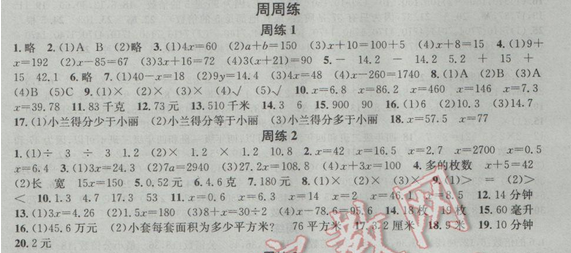 周周练
周练 1
1.略 2.(1)A B (2)略 3.(1)4x=60 (2)a+b=150 (3)x+10=100+5 (4)x+8=15 4.(1)9+
x=192 (2)x-85=67 (3)3x+16=72 (4)3(x+21)=90 5.- 14.2 - 14.2 5.2 + 15 +
15 42.1 6.略 7.(1)40-x=18 (2)9y=14.4 (3)4x=48 (4)x-260=1740 8.(1)A (2)B (3)A
(4)B (5)C 9.(1)× (2)× (3)× (4)√ (5)√ 10.x=6.8 x=86.2 x=460 x=146 x=7.3
x=39.78 11.83千克 12.73元 13.510千米 14.3 6 15.900 90 16.(1)6 (2)10.3 (3)14.7
17.(1)小兰得分少于小丽 (2)小兰得分等于小丽 (3)小兰得分多于小丽 18.x=57.5 x=77
周练 2
1.(1)÷ 3 ÷ 3 1.2 (2)× 1.2 × 1.2 10.8 2.x=42 x=16.5 x=2.7 x=2700 x=0.5
x=6.4 3.(1)3x=24.3 (2)7a=2940 (3)27.2x=108.8 (4)x+3x=100 4.多的枚数 x+5=42
(2)长 宽 15x=150 5.0.52元 6.4.6克 7.180元 8.(1)× (2)× (3)× 9.(1)> = (2)>
< 10.1.3 4.7 17.3 53 11.x=0.6 x=6.3 x=14 x=2 x=46.1 x=8.5 12.14分钟
13.(1)3x=4.26 (2)1.5x=180 (3)8+x=30÷2 (4)x-78.6=95.6 14.18枚 9枚 15.60毫升
16.(1)45.6万元 (2)小套每套面积为多少平方米? 76平方米 17.3.2厘米 18.9米 19.10分钟
20.2元